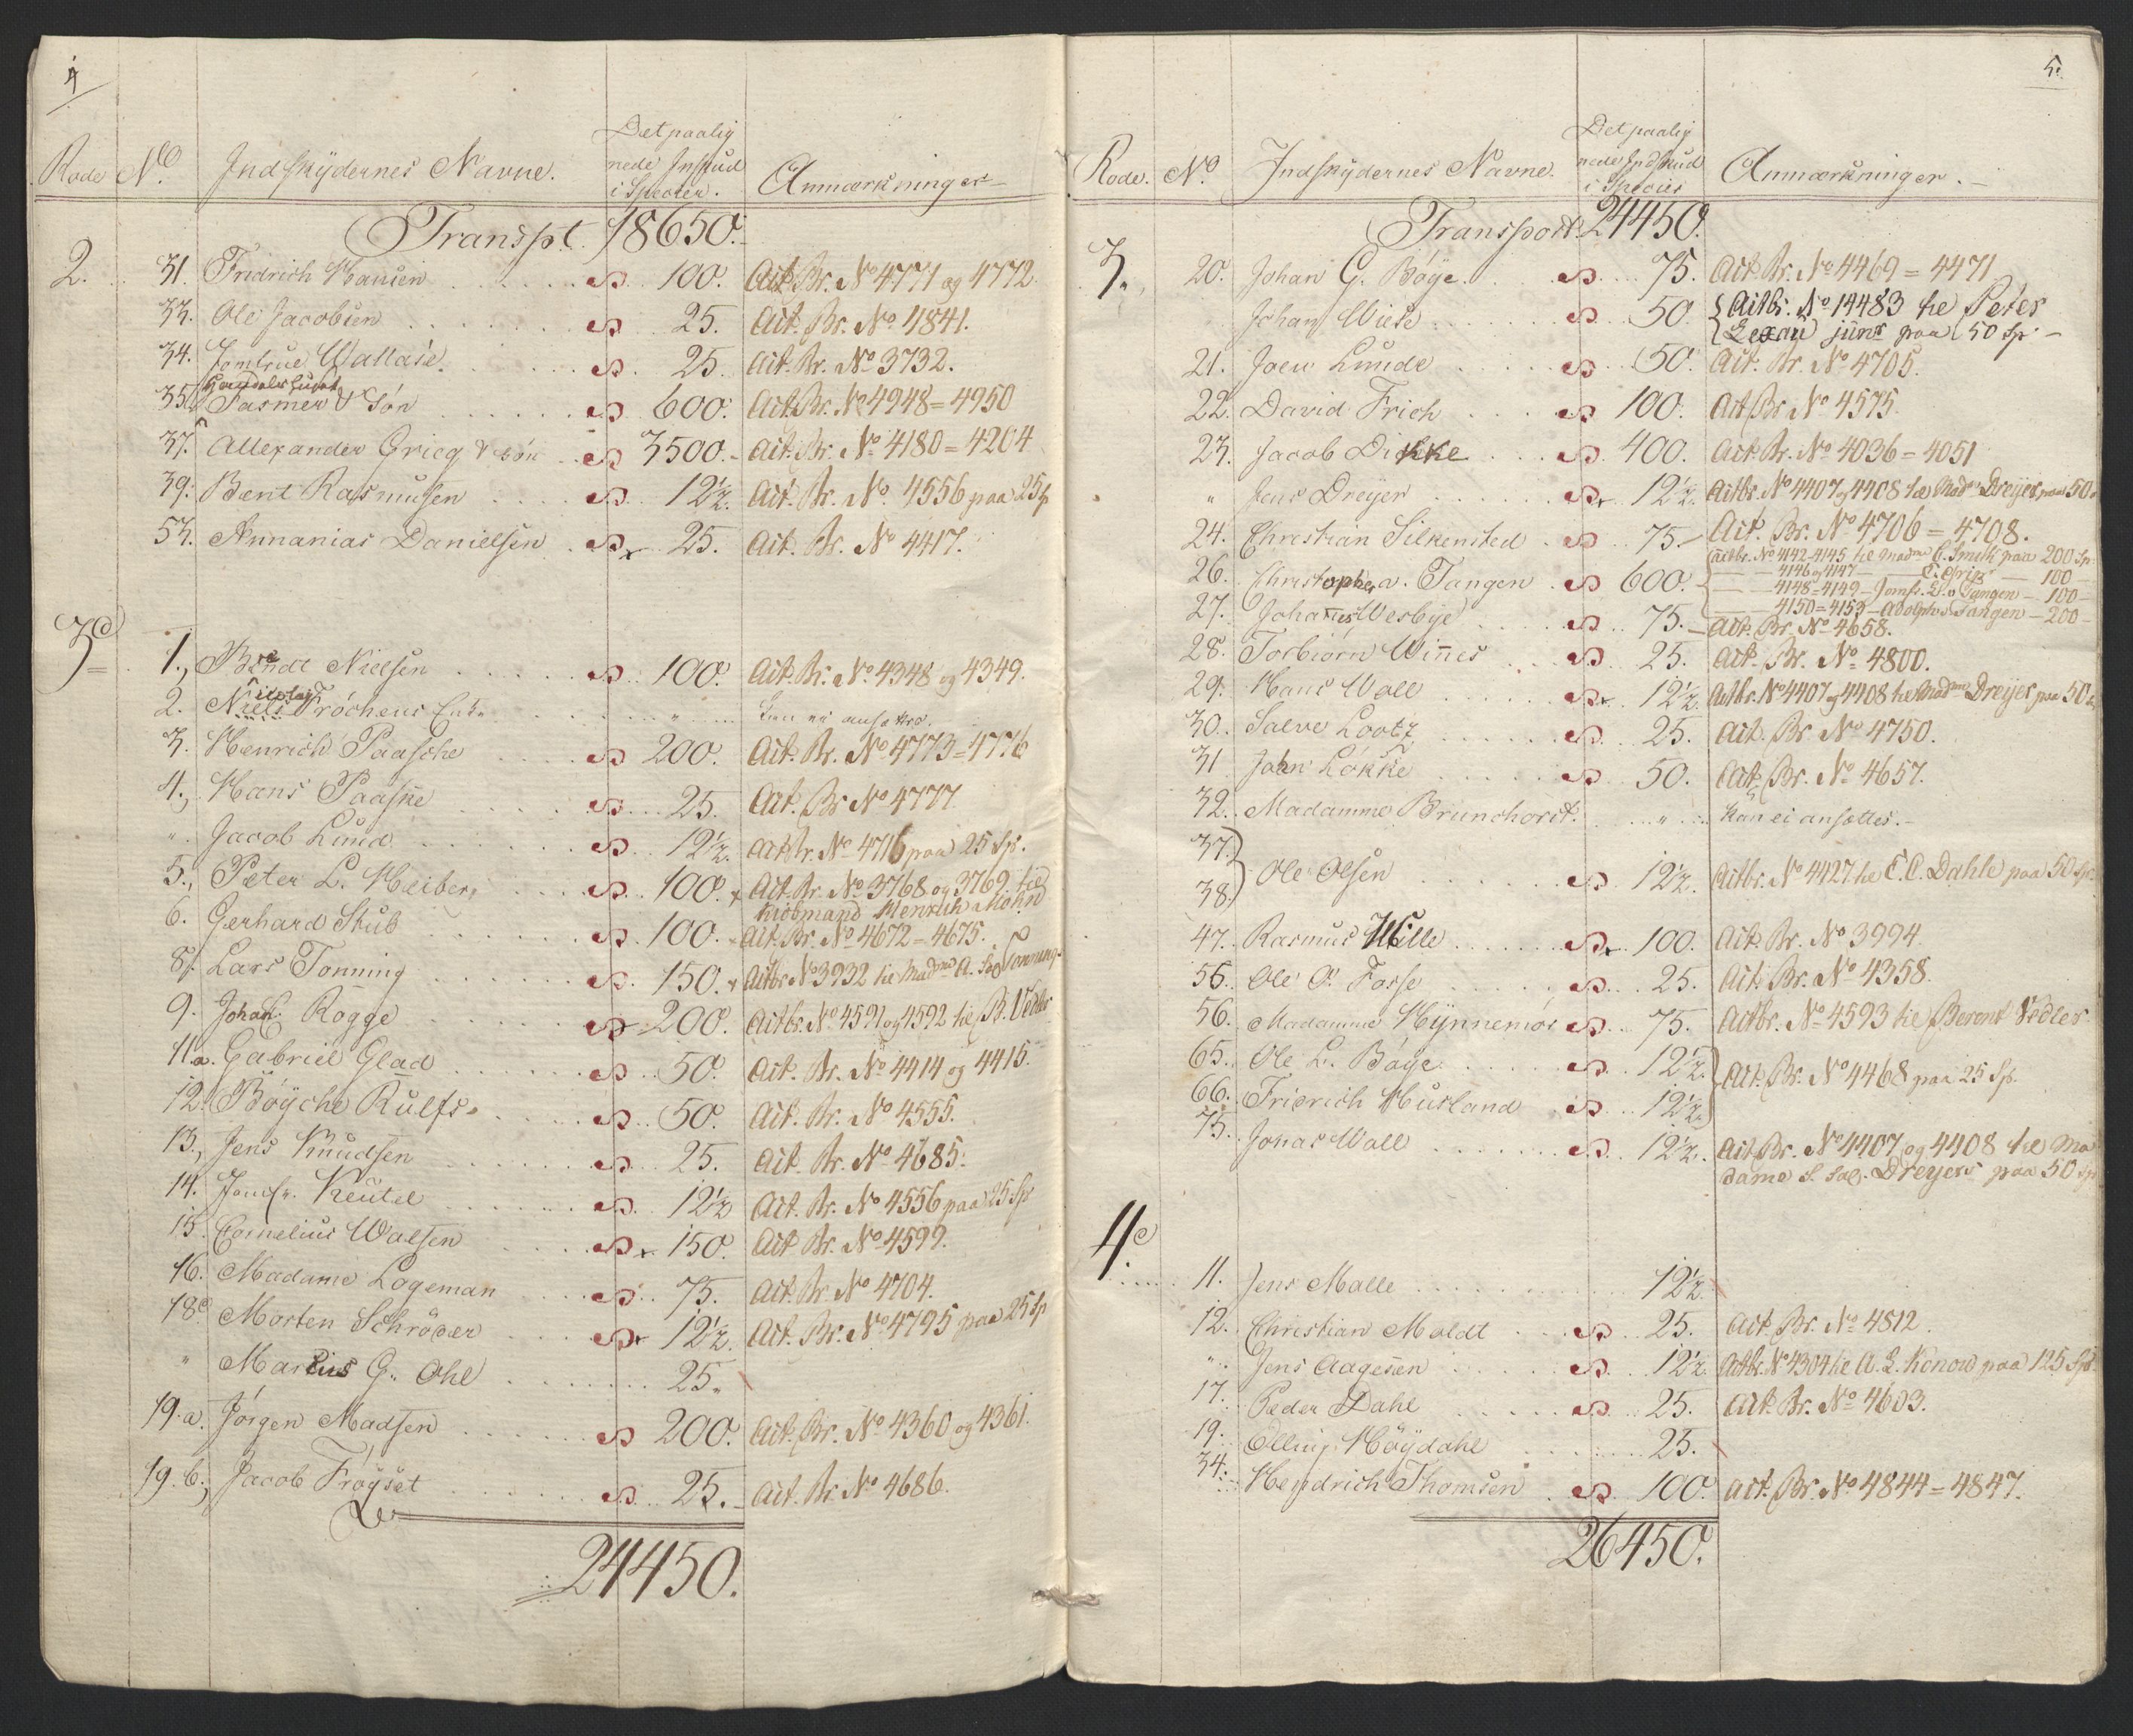 4
Rode No. Indskydernes Navne. Det paalignede Indskud i Specier. Anmærkninger
Transpt. 18650.
2. 31. Fridrich Hansen 100. Act. Br. No 4771 og 4772.
33. Ole Jacobsen 25. Act. Br. No 4841.
34. Jomfrue Wallase 25. Act. Br. No 3732.
Handelshuset
35. Fasmer & Søn 600. Act. Br. No 4948 = 4950
37. Allexander Grieg & Søn 3500. Act. Br. No 4180 = 4204
39. Bent Rasmusen 12½. Act. Br. No 4556 paa 25 Sp
53. Annanias Danielsen 25. Act. Br. No 4417.
3d 1. Bendt Nielsen 100. Act. Br. No 4348 og 4349.
2. Niels Frøchens Enke " kan ei ansættes.
3. Henrich Paasche 200. Act. Br. No 4773 = 4776
4. Hans Paaske 25. Act. Br. No 4777
" Jacob Lund 12½. Act. Br. No 4716 paa 25 Sp.
5. Peter L. Heiberg 100. Act. Br. No 3768 og 3769 til
Kiøbmand Henrich Mohn
6. Gerhard Stub 100. Act. Br. No 4672 = 4675.
8. Lars Tonning 150. Actbr. No 3932 til Madme A. Sal. Tonning
9. Johan Rogge 200. Actbr. No 4591 og 4592 til B. Vedler
11.a. Gabriel Glad 50. Act. Br. No 4414 og 4415.
12. Bøyche Rulfs 50. Act. Br. No 4555.
13. Jens Knudsen 25. Act. Br. No 4685.
14. Jomfr. Keutel 12½ Act. Br. No 4556 paa 25 Sp
15. Cornelius Walsen 150. Act. Br. No 4599.
16. Madame Logeman 75. Act. Br. No 4704.
18.c Morten Schrøder 12½. Act. Br. No 4795 paa 25 Sp
" Martius G. Ohl 25.
19.a. Jørgen Madsen 200. Act. Br. No 4360 og 4361.
19.b. Jacob Frøyset 25. Act. Br. No 4686.
24450.
5.
Rode. No. Indskydernes Navne. Det paalignede Indskud i Specier Anmærkninger.
Transport. 24450.
3. 20. Johan G. Bøye 75. Act. Br. No 4469 = 4471
Johan Wiese 50 Actbr. No 14483 til Peter
Lexau junr paa 50 Sp.
21. Joen Lunde 50. Act. Br. No 4705.
22. David Frich 100. Act. Br. No 4575.
23. Jacob Dickke 400. Act. Br. No 4036 = 4051
" Jens Dreyer 12½. Actbr. No 4407 og 4408 til Madme Dreyer paa 50
24. Christian Silkensted 75. Act. Br. No 4706 = 4708.
26. Christopher v. Tangen 600. Actbr. No 4142=4145 til Madme C. Smith paa 200 Sp.
4146 og 4147 100
4148=4149 Jomfr. D. v. Tangen 100
4150=4153 Adolph v. Tangen 200
27. Johannes Wesbye 75. Act. Br. No 4658.
28. Torbiørn Winnes 25. Act. Br. No 4800.
29. Hans Wall 12½ Actbr. No 4407 og 4408 til Madme Dreyer paa 50
30. Salve Lootz 25. Act. Br. No 4750.
31 Jahn Løkke 50. Act. Br. No 4657.
32. Madamme Brunchorst. " Kan ei ansættes.
37.
38. Ole Olsen 12½. Actbr. No 4427 til C. C. Dahle paa 50 Sp.
47. Rasmus Hille 100. Act. Br. No 3994.
56. Ole O. Fosse 25. Act. Br. No 4358.
56. Madamme Hynnemør 75. Actbr. No 4593 til Berent Vedler
65. Ole L. Bøye 12½. Act. Br. No 4468 paa 25 Sp.
66. Friderich Husland 12½.
75. Jonas Wall 12½. Act. Br. No 4407 og 4408 til Ma
dame S. Sal. Dreyers paa 50 Sp
4. 11. Jens Malle 12½
12. Christian Moldt 25. Act. Br. No 4812.
" Jens Aagesen 12½. Actbr. No 4304 til A. L. Konow paa 125 Sp
17. Peder Dahl 25. Act. Br. No 4603.
19. Elling Høydahl 25.
34. Hendrich Thomsen 100. Act. Br. No 4844 = 4847.
26450.